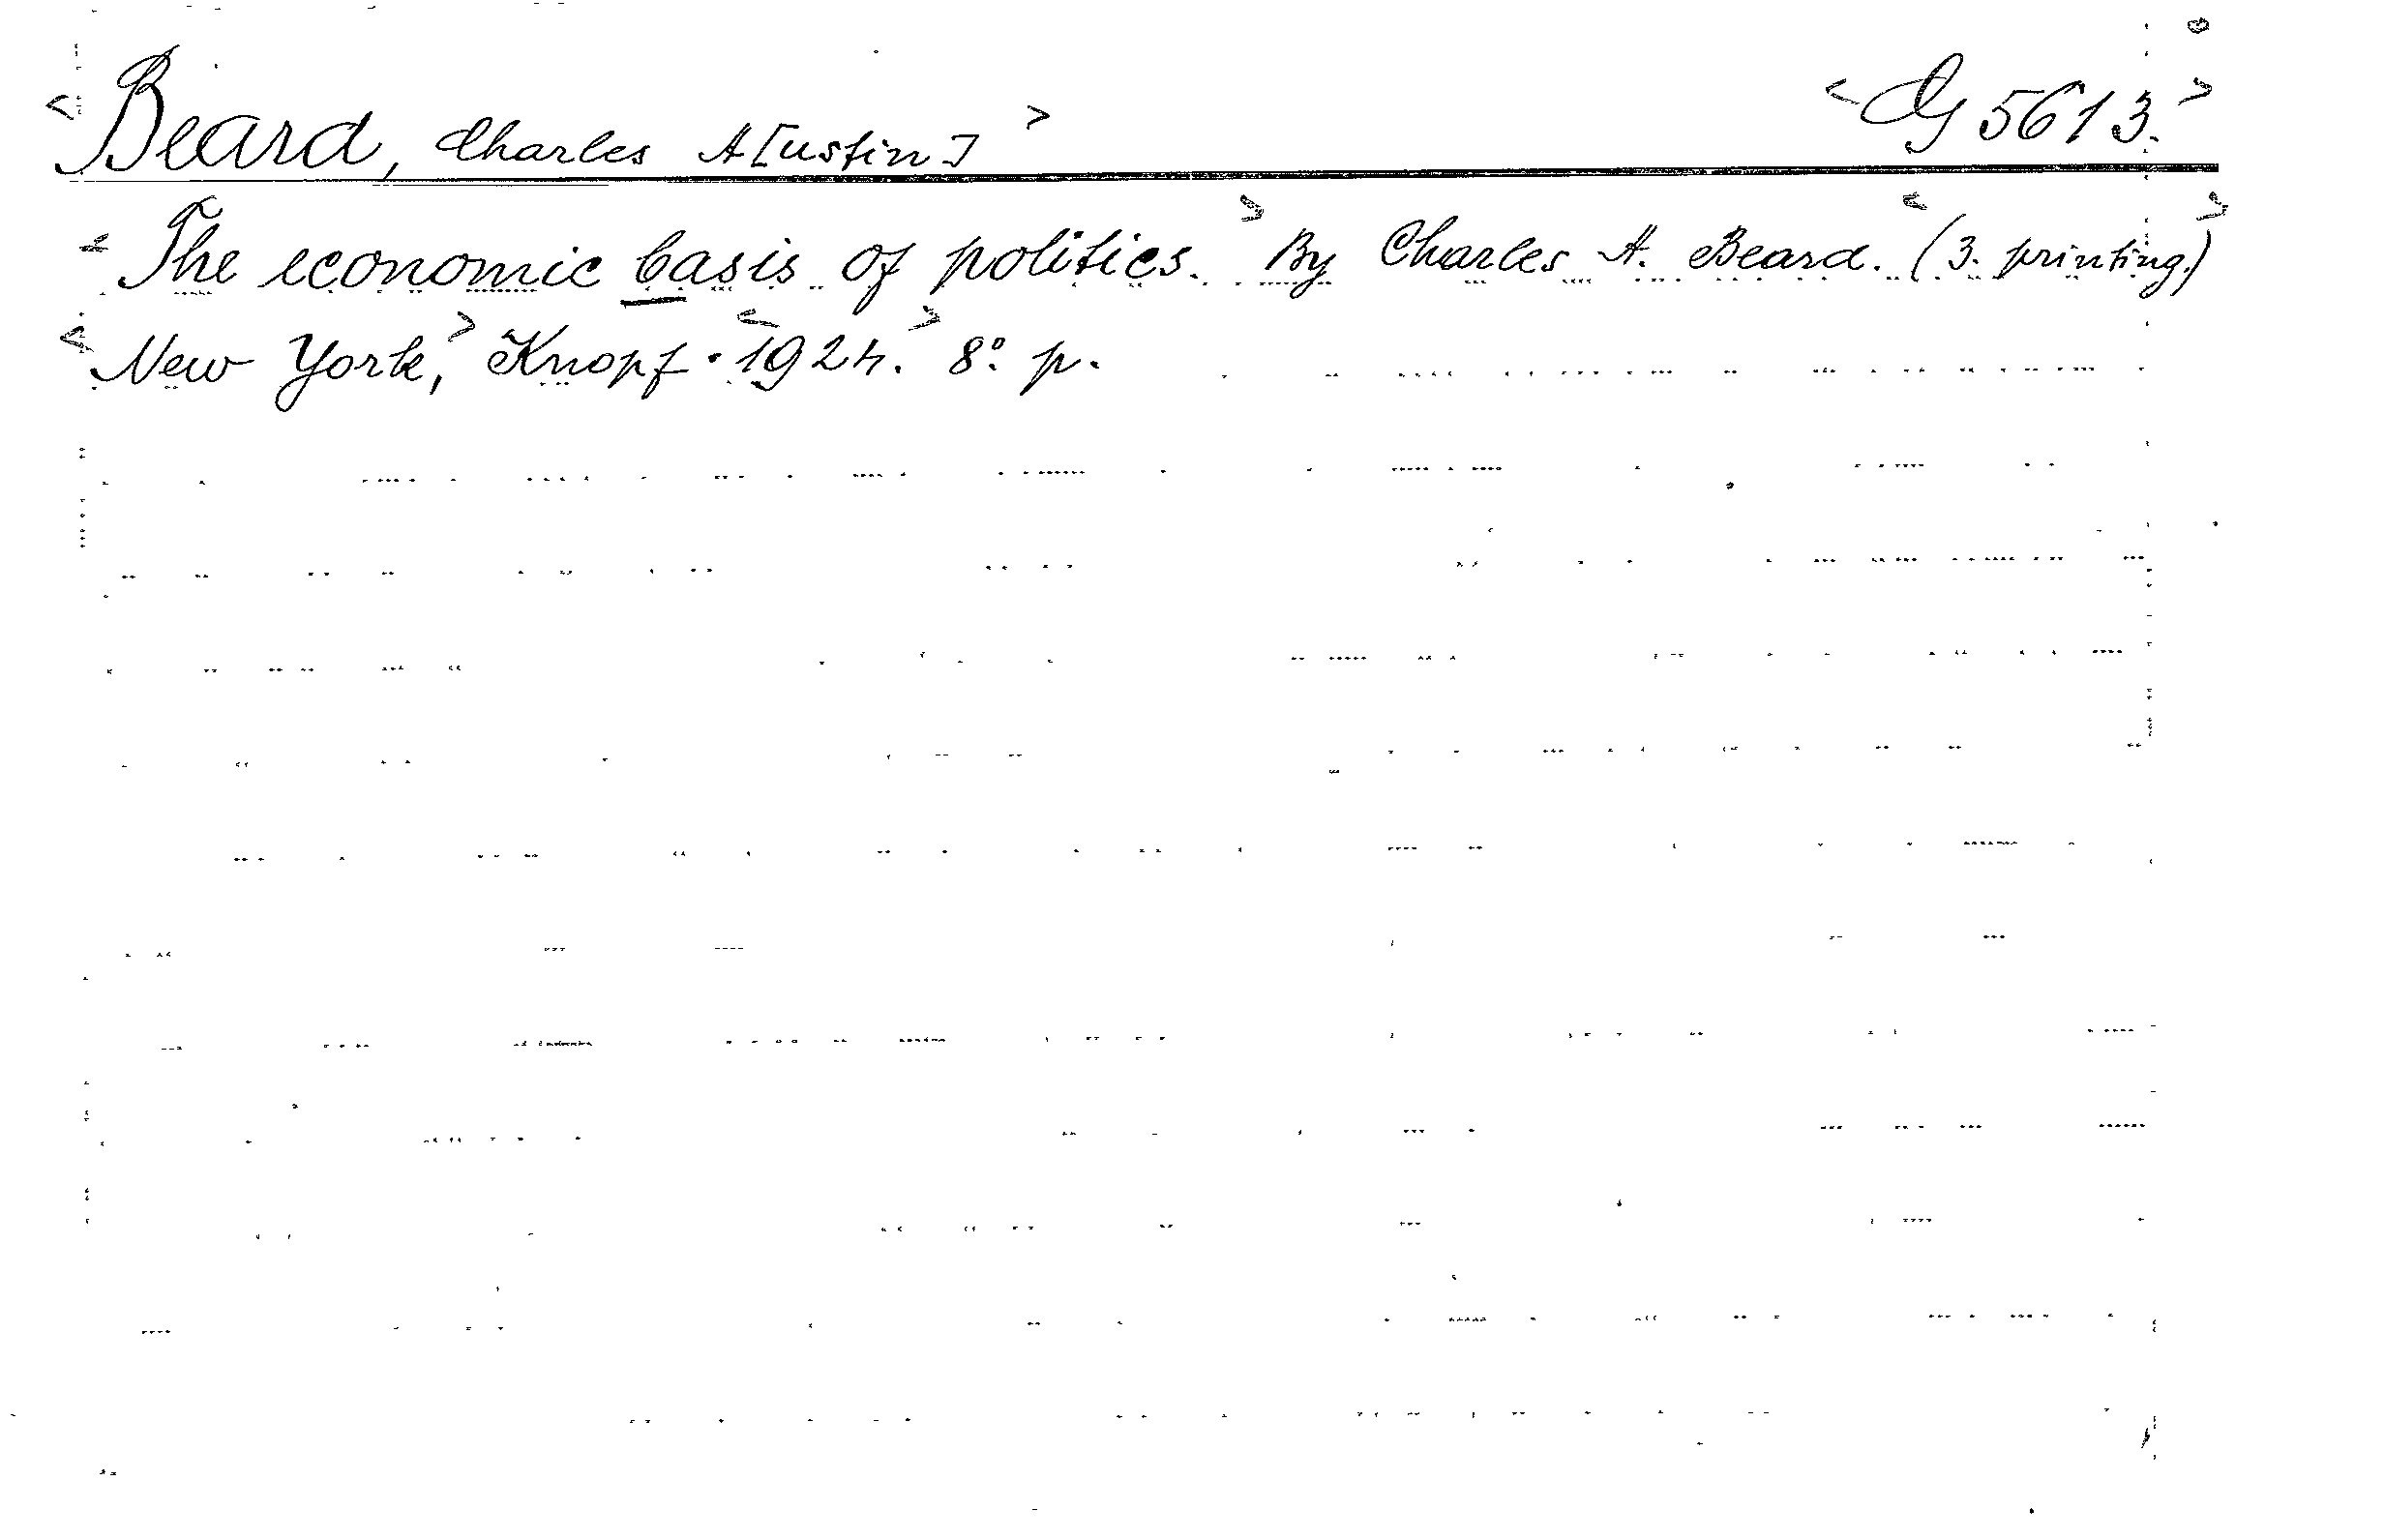 <Beard, Charles A[ustin]> <G 5613.>
<The economic basis of politics.> By Charles A. Beard. <(3. printing.)>
<New York,> Knopf. <1924.> 8° p.